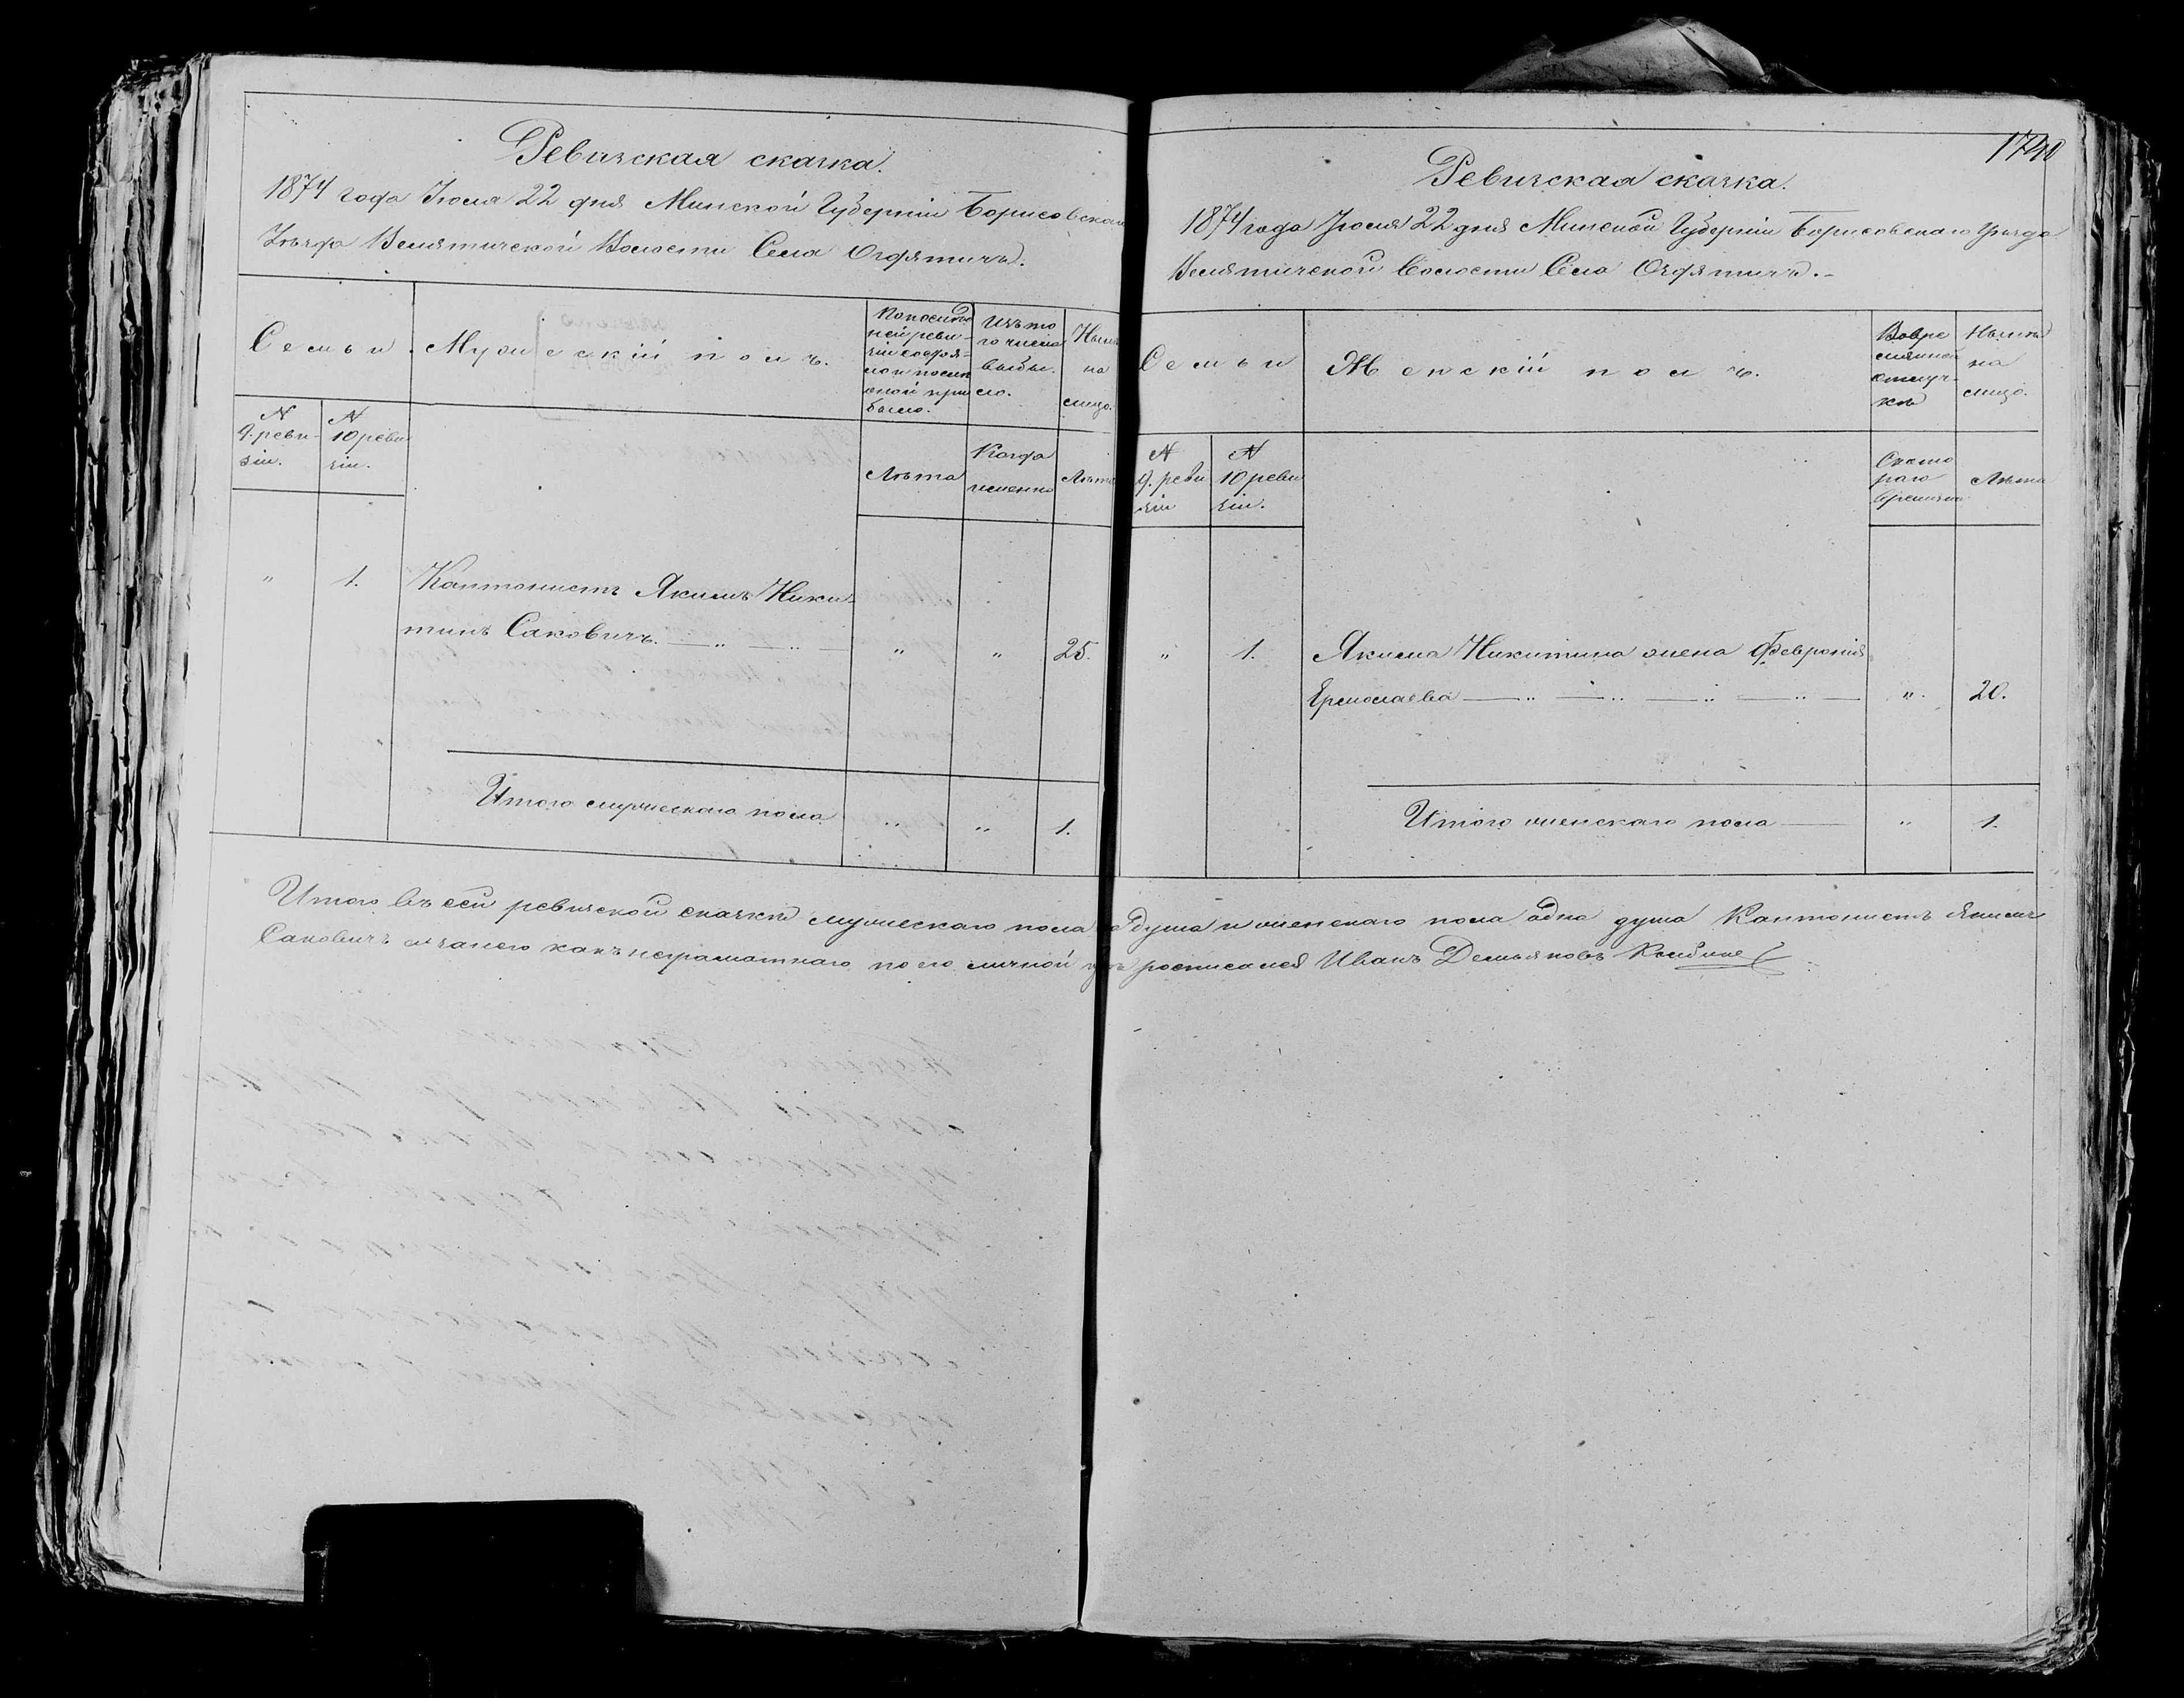 Ревизская сказка.
1874 года Июля 22 дня Минской Губерніи Борисовскаго
Уѣзда Велятичской Волости Села Оздятичъ.
Семьи.
Мужескій полъ.
По послѣд
ней реви-
зіи состоя-
ло и послѣ
оной при
было.
Изъ то
го числа
выбы-
ло.
Нынѣ
на
лицо.
N
9. реви-
зіи.
N
10 реви
зіи.
Лѣта
Когда
именно
Лѣта
" 1. Кантонистъ Якимъ Ники-
тинъ Саковичъ. — " — " — " " 25.
Итого мужескаго пола " " 1.
1740
Ревизская сказка.
1874 года Іюля 22 дня Минской Губерніи Борисовскаго Уѣзда
Велятичской Волости Села Оздятичъ.-
Семьи
Женскій полъ.
Вовре
менной
отлуч-
кѣ
Нынѣ
на
лицо.
N
9. реви
зіи
N
10 реви
зіи.
Ското
раго
времени
Лѣта
" 1. Якима Никитина жена Февронія
Ермолаева — " — " — " — " — " 20.
Итого женскаго пола — " 1.
Итого въ сей ревизской сказкѣ мужескаго пола душа и женскаго пола одна душа Кантонистъ Якимъ
Саковичъ а занего какъ неграмотнаго по его личной росписался Иванъ Демьяновъ